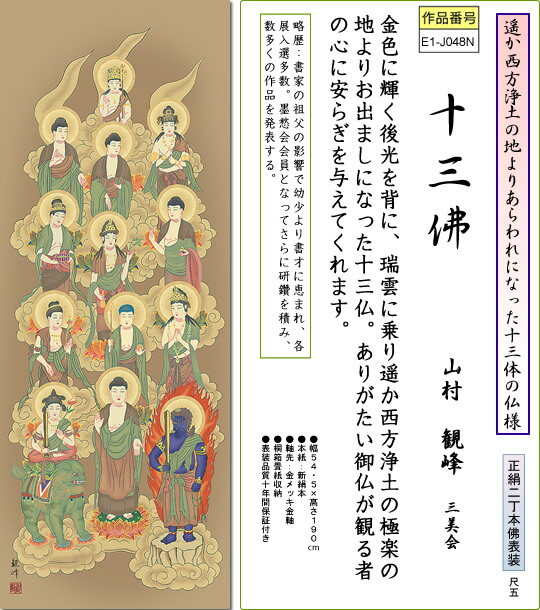 遥か西方浄土の地よりあらわれになった十三体の仏様
正絹二丁本佛表装
尺五
作品番号
E1-J048N
十三佛
山村 観峰 三美会
金色に輝く後光を背に、瑞雲に乗り遥か西方浄土の極楽の
地よりお出ましになった十三仏。ありがたい御仏が観る者
の心に安らぎを与えてくれます。
●幅54.5×高さ190cm
●本紙:新絹本
●軸先:金メッキ金軸
●桐箱畳紙収納
●表装品質十年間保証付き
略歴:書家の祖父の影響で幼少より書才に恵まれ、各
展入選多数。墨愁会会員となってさらに研鑽を積み、
数多くの作品を発表する。
観峰